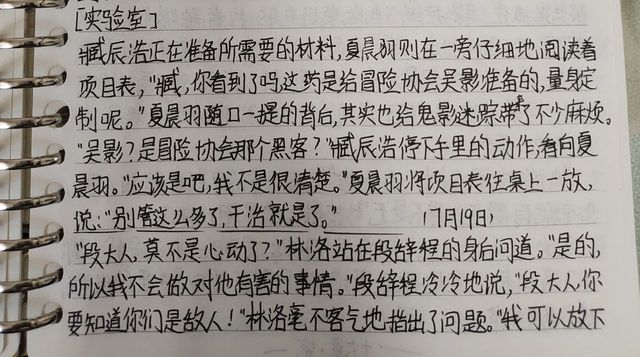 [实验室]
臧辰浩正在准备所需要的材料,夏晨羽则在一旁仔细地阅读着
项目表,"臧,你看到了吗,这药是给冒险协会吴影准备的,量身定
制呢。"夏晨羽随口一提的背后,其实也给鬼影迷踪带来了不少麻烦。
"吴影?是冒险协会那个黑客?"臧辰浩停下手里的动作,看向夏
晨羽。"应该是吧,我不是很清楚。"夏晨羽将项目表往桌上一放,
说:"别管这么多了,干活就是了。" (7月19日)
"段大人,莫不是心动了?"林洛站在段辞程的身后问道。"是的,
所以我不会做对他有害的事情。"段辞程冷冷地说,"段大人,你
要知道你们是敌人!"林洛毫不客气地指出了问题。"我可以放下